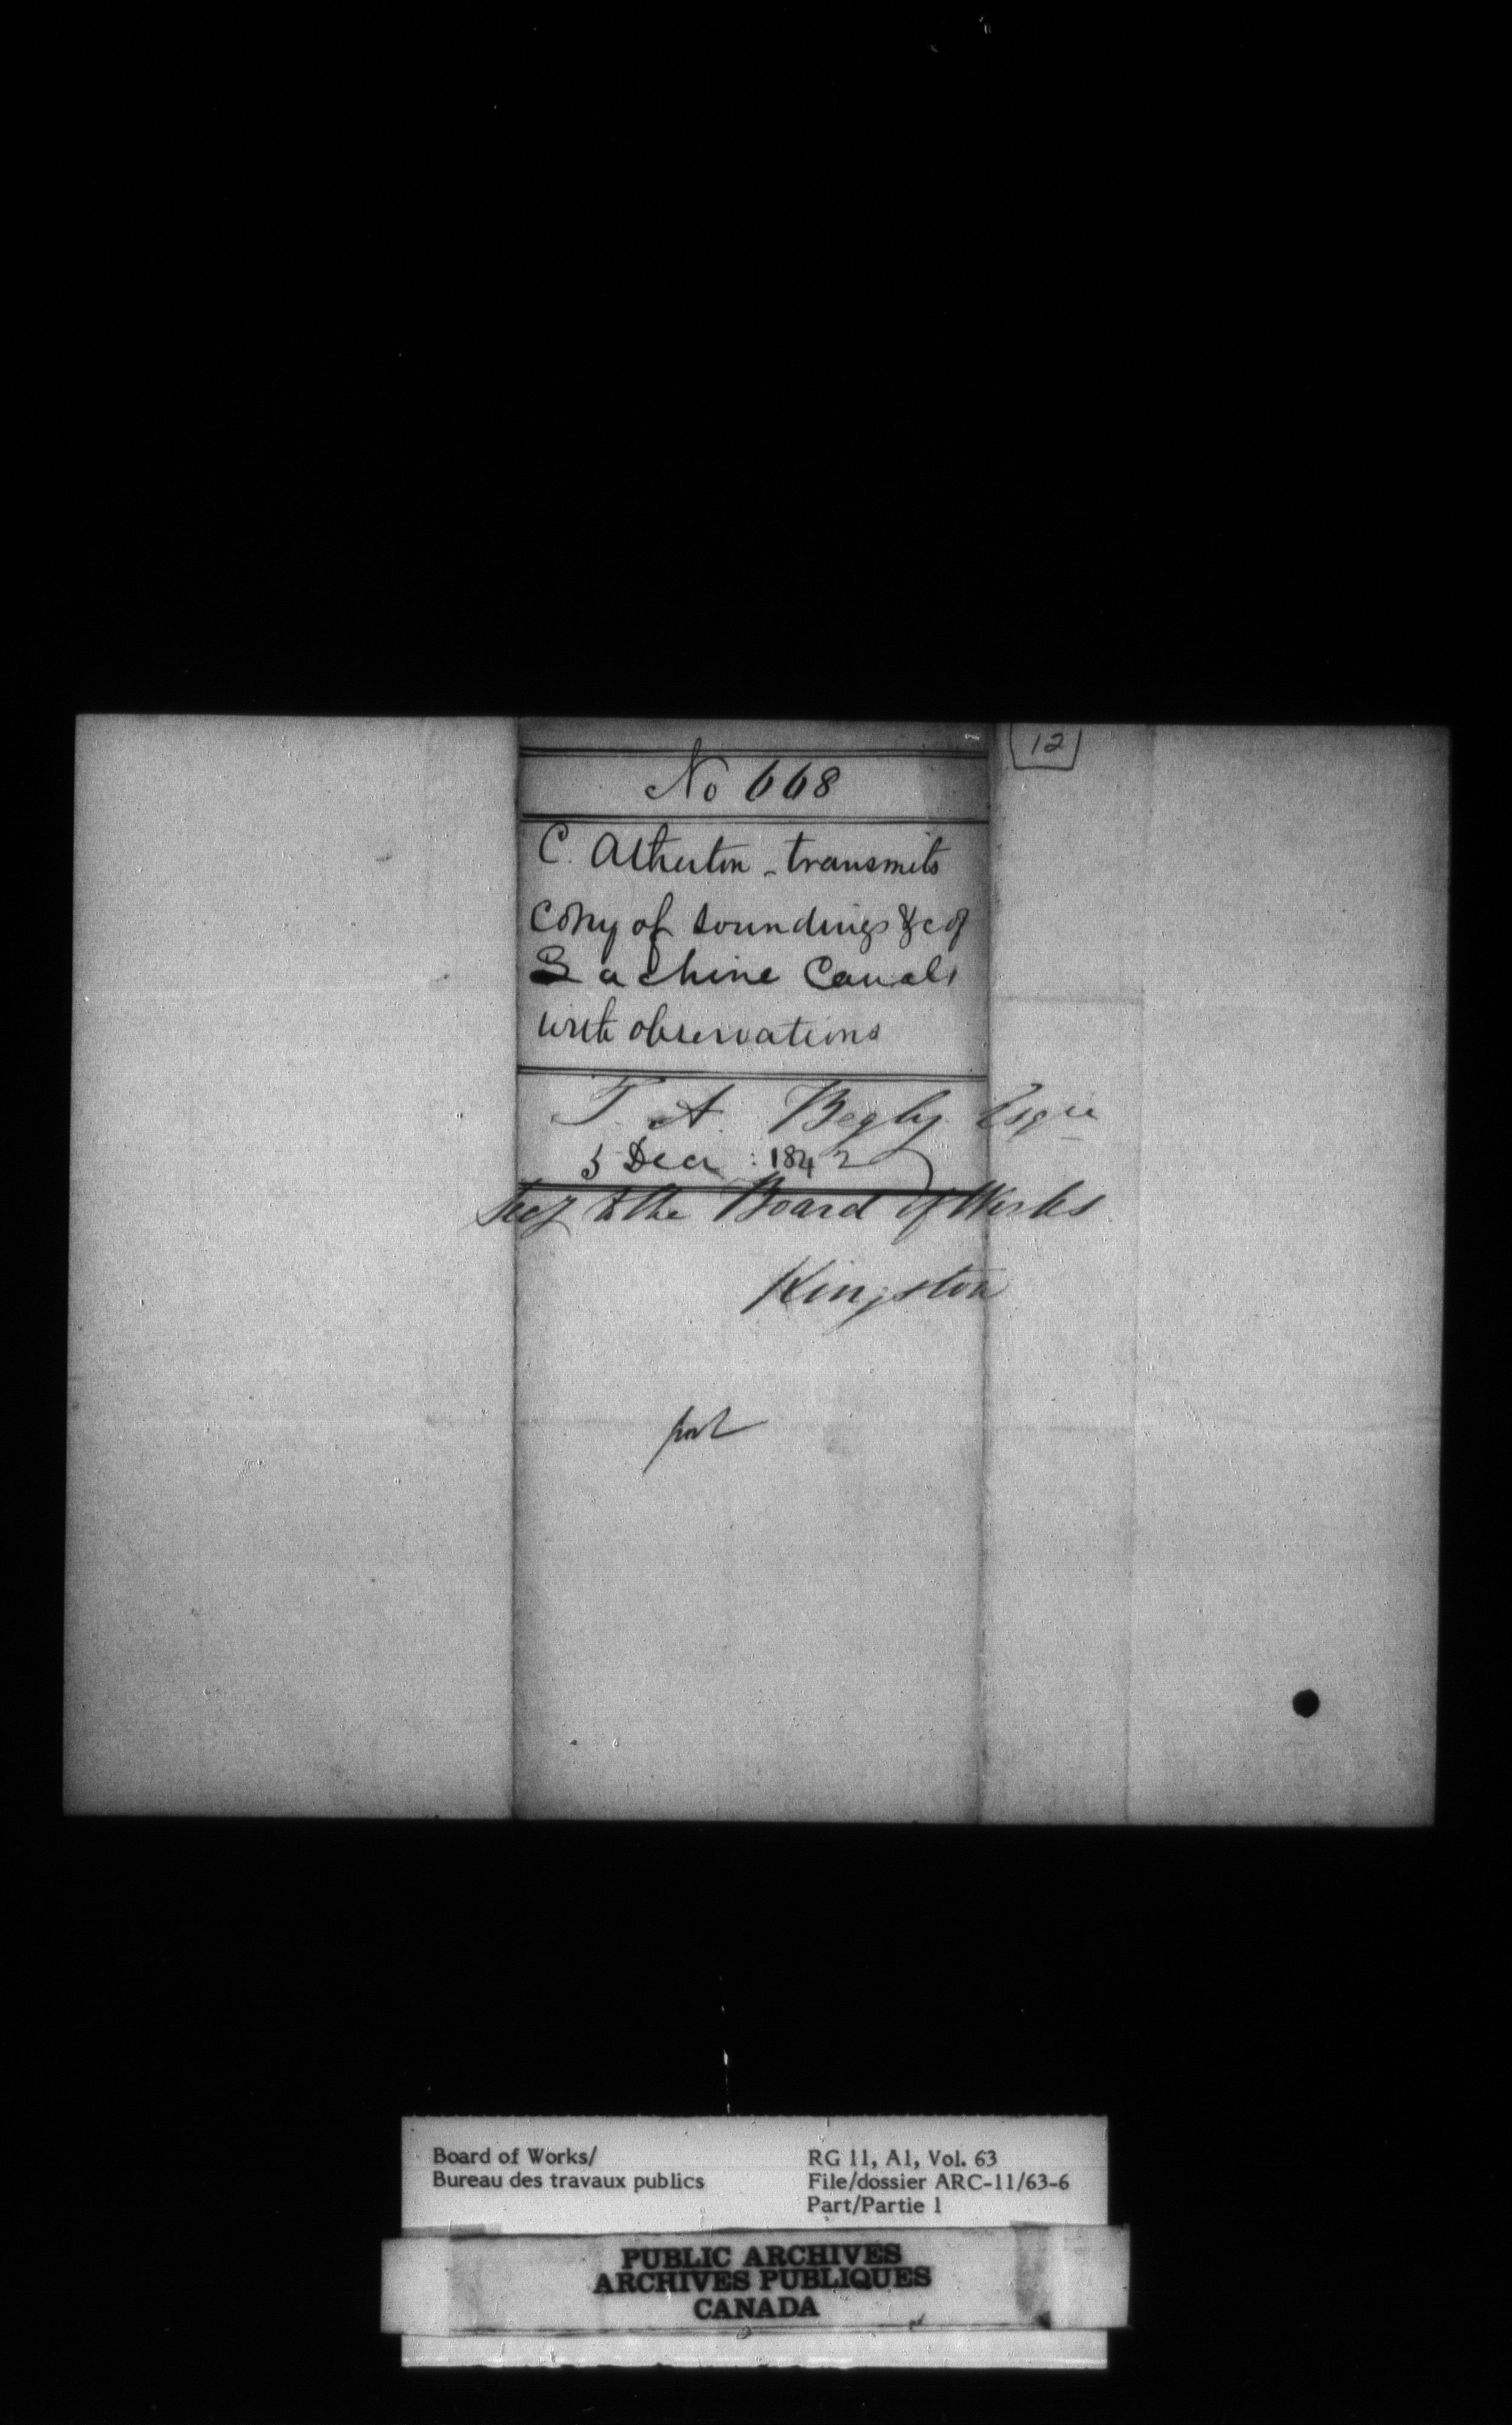 12
No 668
C. Atherton - transmits
Copy of soundings &c of
Lachine Canal
with observations
T. A. Begly Esqre
5 Decr : 1842
Secy to the Board of Works
Kingston
Board of Works/
Bureau des travaux publics
RG 11, A1, Vol. 63
File/dossier ARC-11/63-6
Part/Partie 1
PUBLIC ARCHIVES
ARCHIVES PUBLIQUES
CANADA